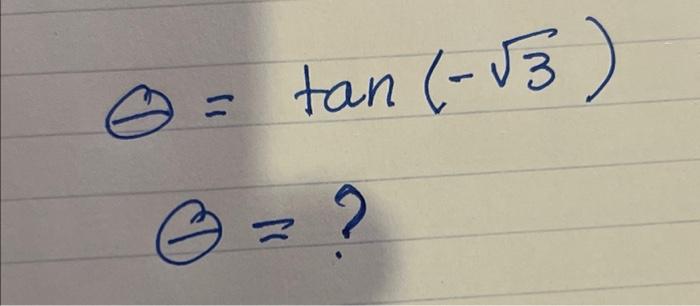 θ = tan (-√3)
θ = ?